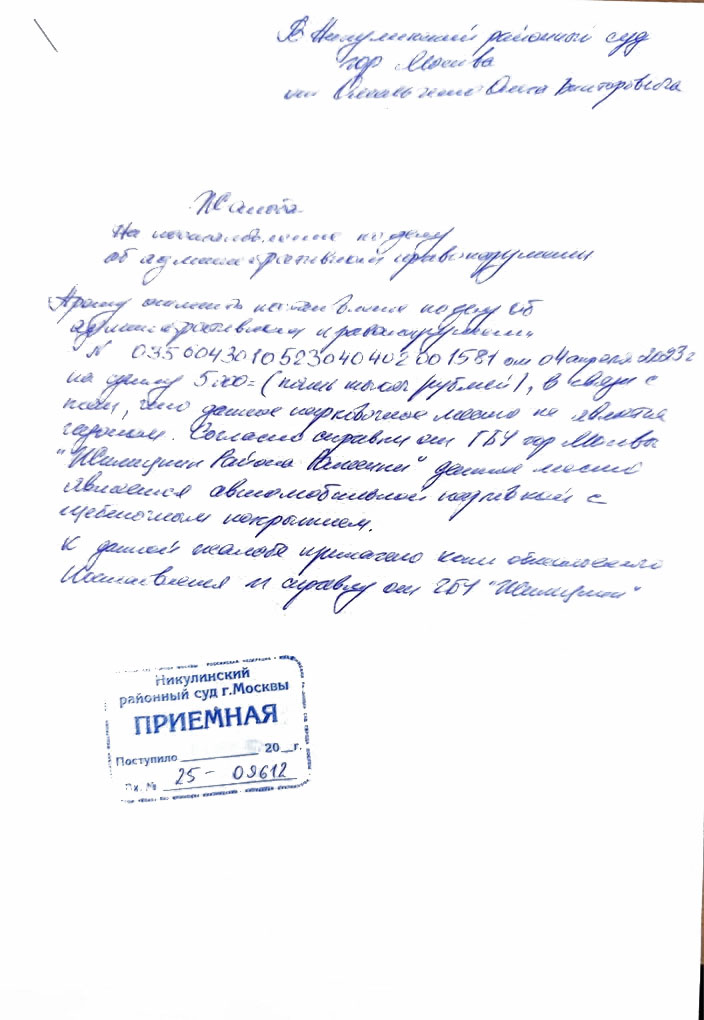 В Никулинский районный суд
гор Москва
от Олега Викторовича
Жалоба
На постановление по делу
об административном правонарушении
Прошу отменить постановление по делу об
административном правонарушении
N 0356043010523040402001581 от 04 апреля 2023 г
на сумму 5000= (пять тысяч рублей), в связи с
тем, что данное парковочное место не является
газоном. Согласно справки от ГБУ гор Москвы
"Жилищник Района" данное место
является автомобильной с
щебеночным покрытием.
К данной жалобе приложено
Постановления и справку от ГБУ "Жилищник"
Никулинский
районный суд г.Москвы
ПРИЕМНАЯ
Поступило 20 г.
Вх. № 25 - 09612